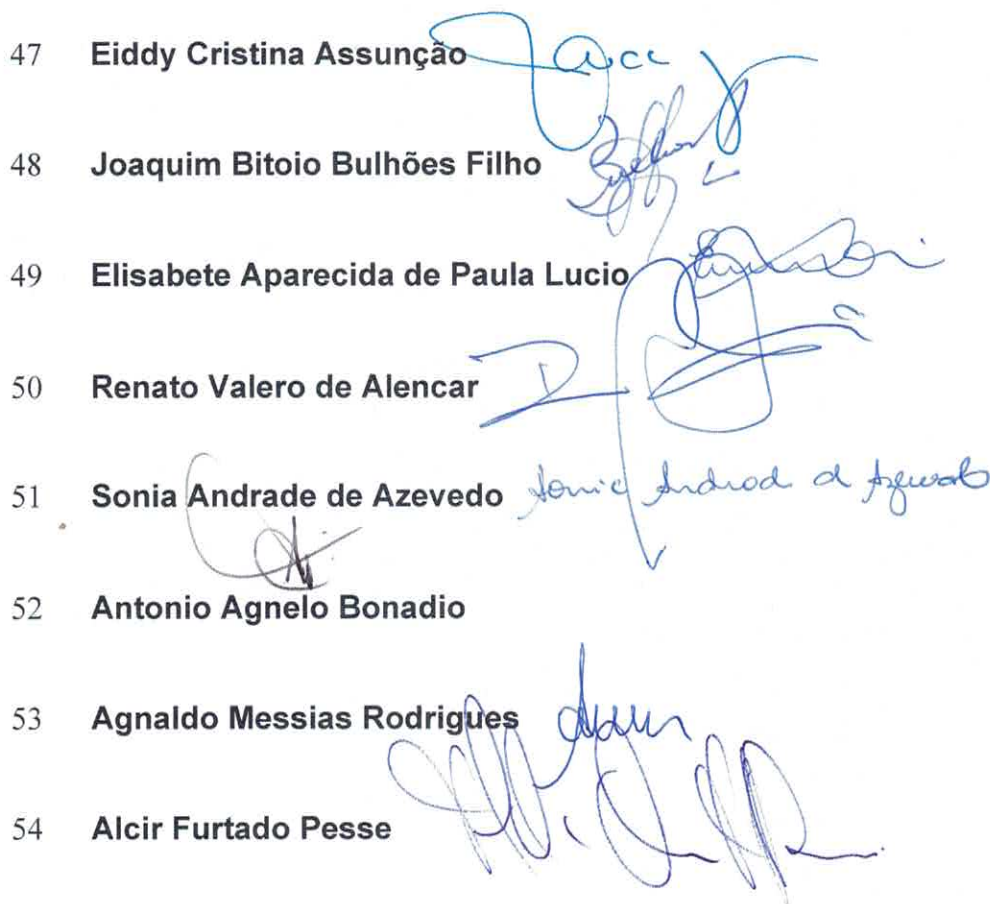 47 Eiddy Cristina Assunção
48 Joaquim Bitoio Bulhões Filho
49 Elisabete Aparecida de Paula Lucio
50 Renato Valero de Alencar
51 Sonia Andrade de Azevedo
52 Antonio Agnelo Bonadio
53 Agnaldo Messias Rodrigues
54 Alcir Furtado Pesse